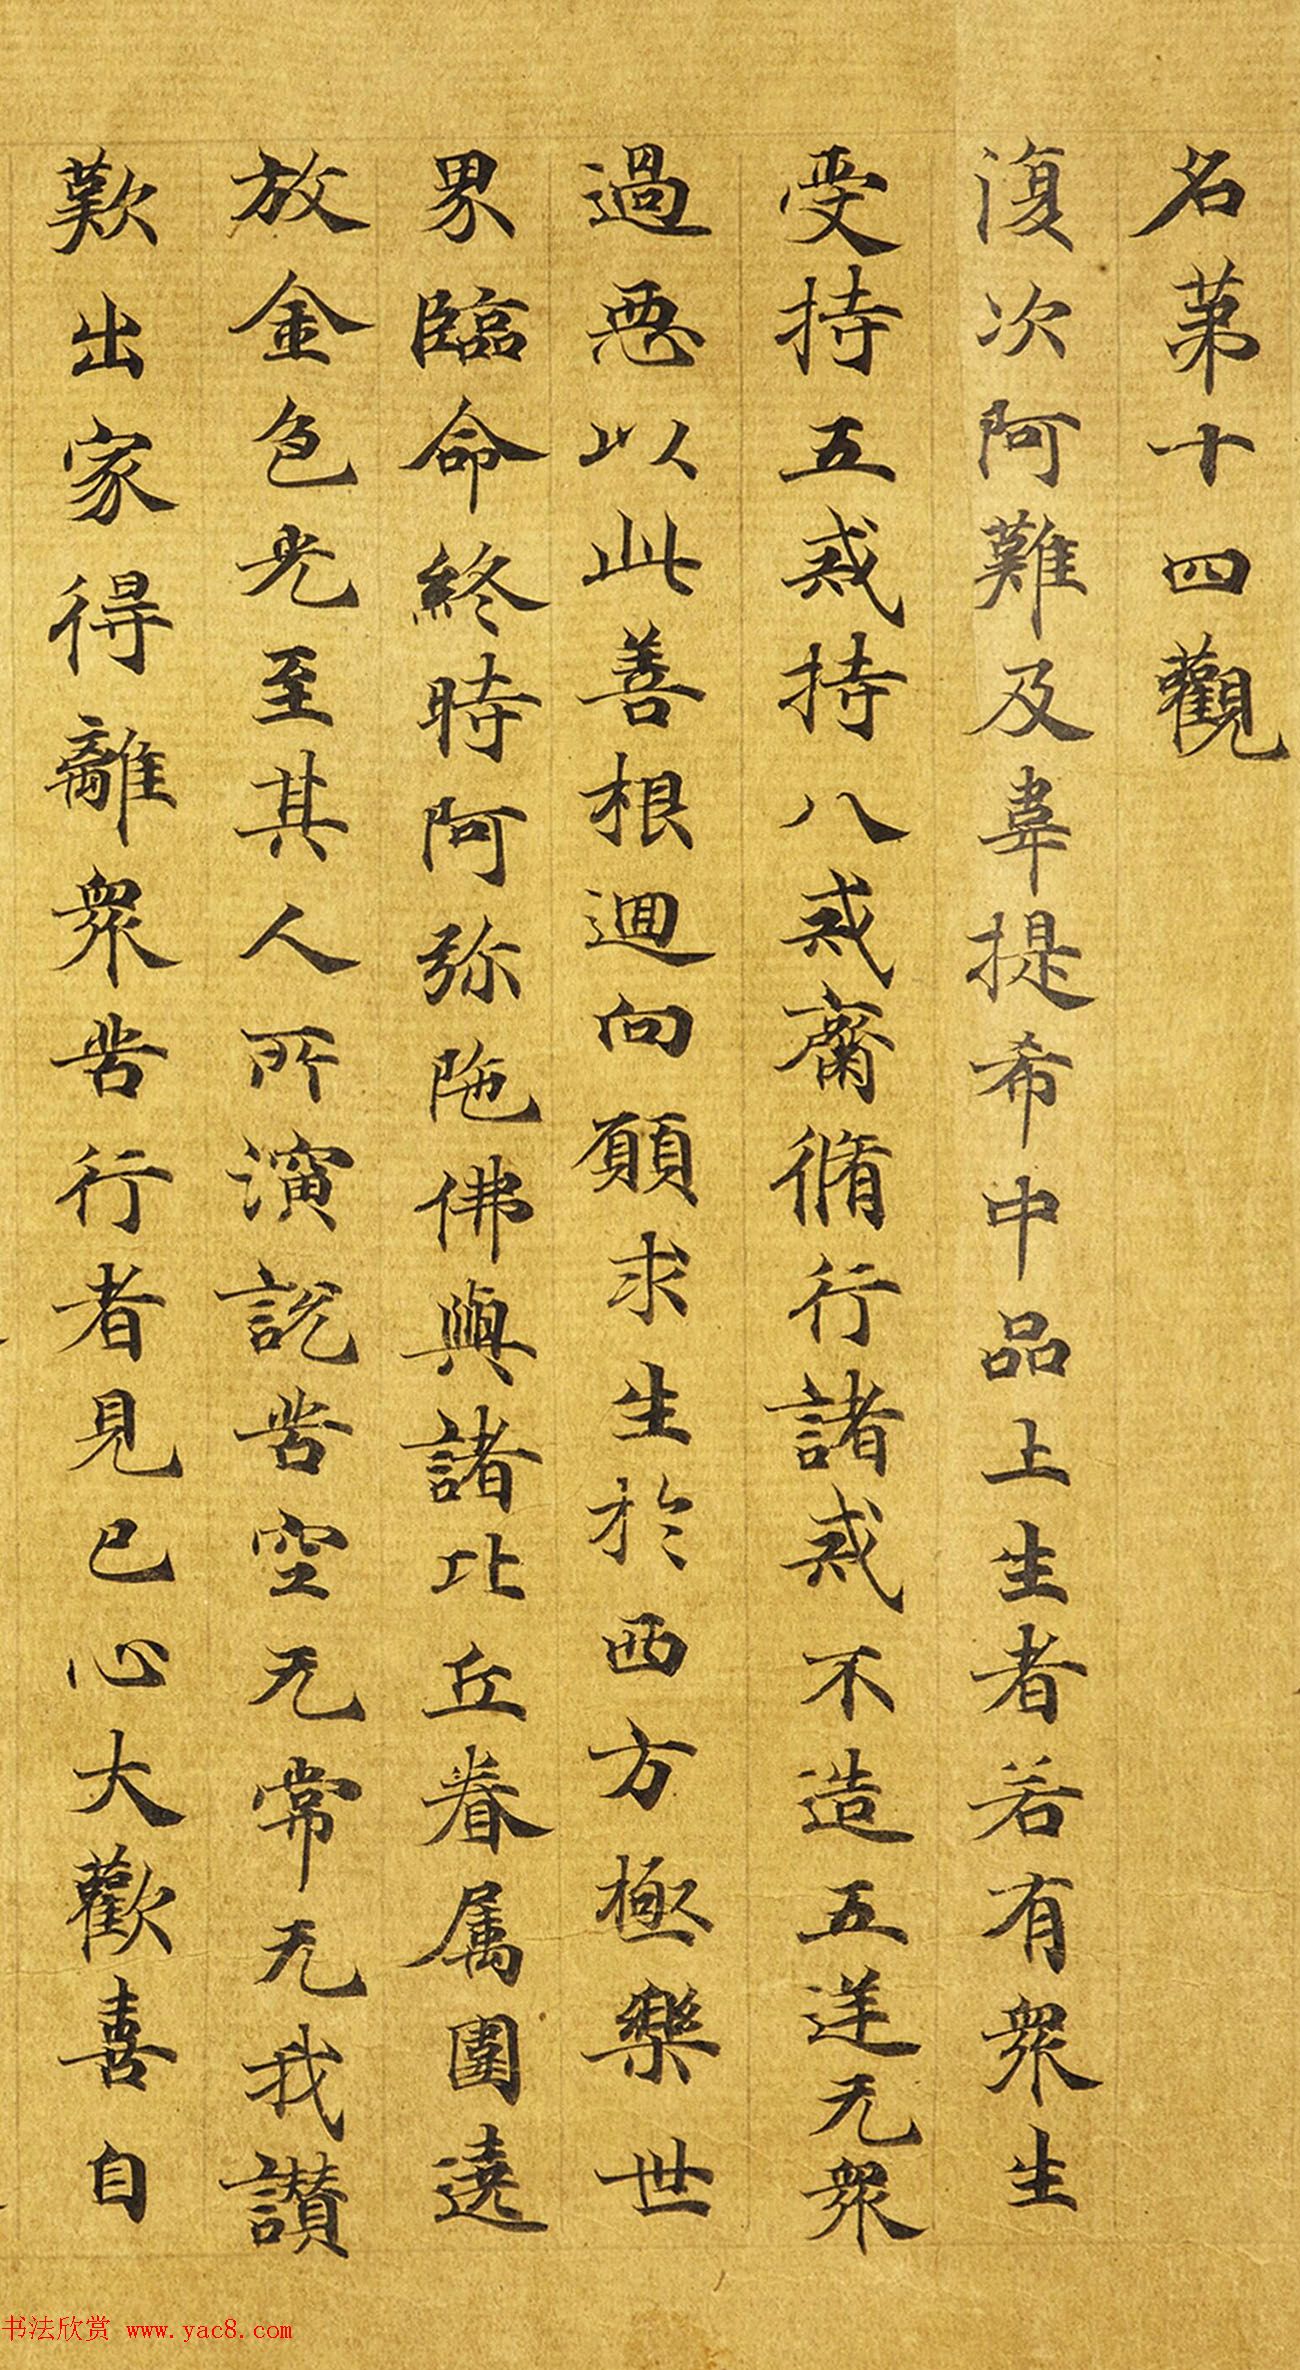 名第十四觀
復次阿難及韋提希中品上生者若有衆生
受持五戒持八戒齋脩行諸戒不造五逆无衆
過惡以此善根迴向願求生於西方極樂世
界臨命終時阿弥陁佛與諸比丘眷属圍遶
放金色光至其人所演説苦空无常无我讃
歎出家得離衆苦行者見已心大歡喜自
书法欣赏 www.yac8.com